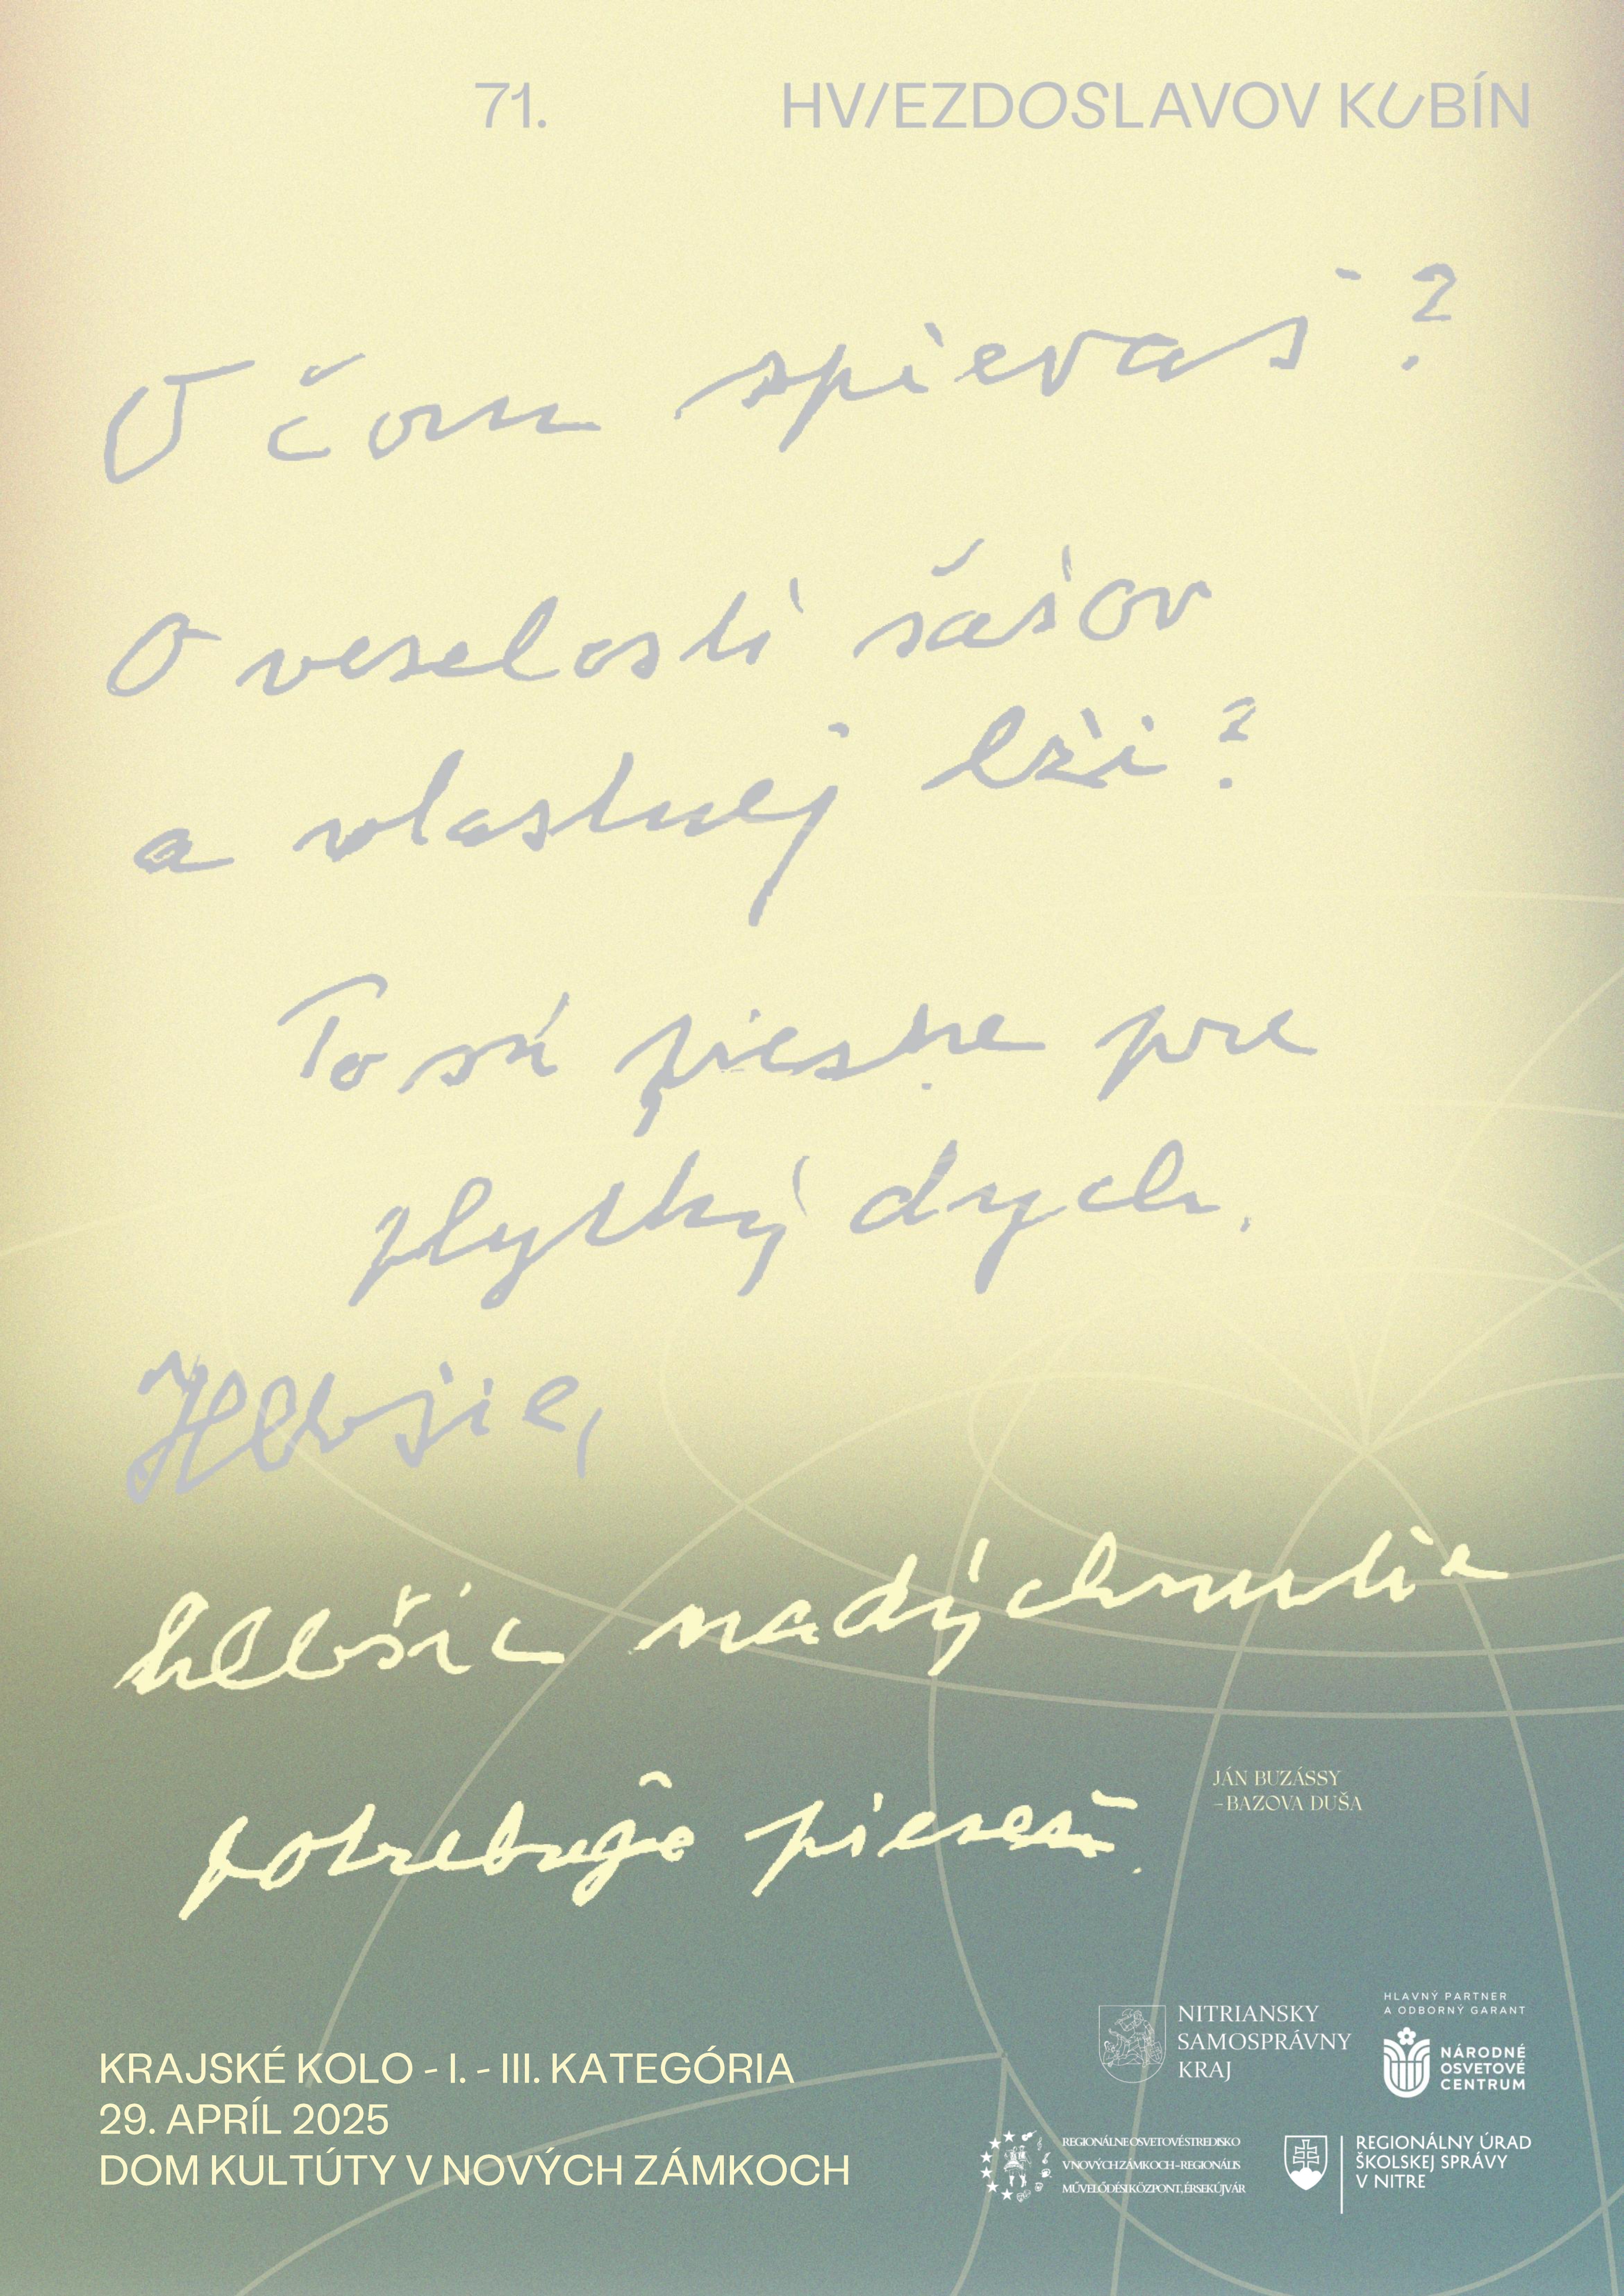 71. HVIEZDOSLAVOV KUBÍN
O čom spievaš?
O veselosti šašov
a vlastnej lži?
To sú piesne pre
plytký dych.
Hlbšie,
hlbšie nadýchnutie
potrebuje pieseň.
JÁN BUZÁSSY
– BAZOVA DUŠA
HLAVNÝ PARTNER
A ODBORNÝ GARANT
NITRIANSKY
SAMOSPRÁVNY
KRAJ
NÁRODNÉ
OSVETOVÉ
CENTRUM
KRAJSKÉ KOLO - I. - III. KATEGÓRIA
29. APRÍL 2025
DOM KULTÚTY V NOVÝCH ZÁMKOCH
REGIONÁLNE OSVETOVÉ STREDISKO
V NOVÝCH ZÁMKOCH – REGIONÁLIS
MŰVELŐDÉSI KÖZPONT, ÉRSEKÚJVÁR
REGIONÁLNY ÚRAD
ŠKOLSKEJ SPRÁVY
V NITRE